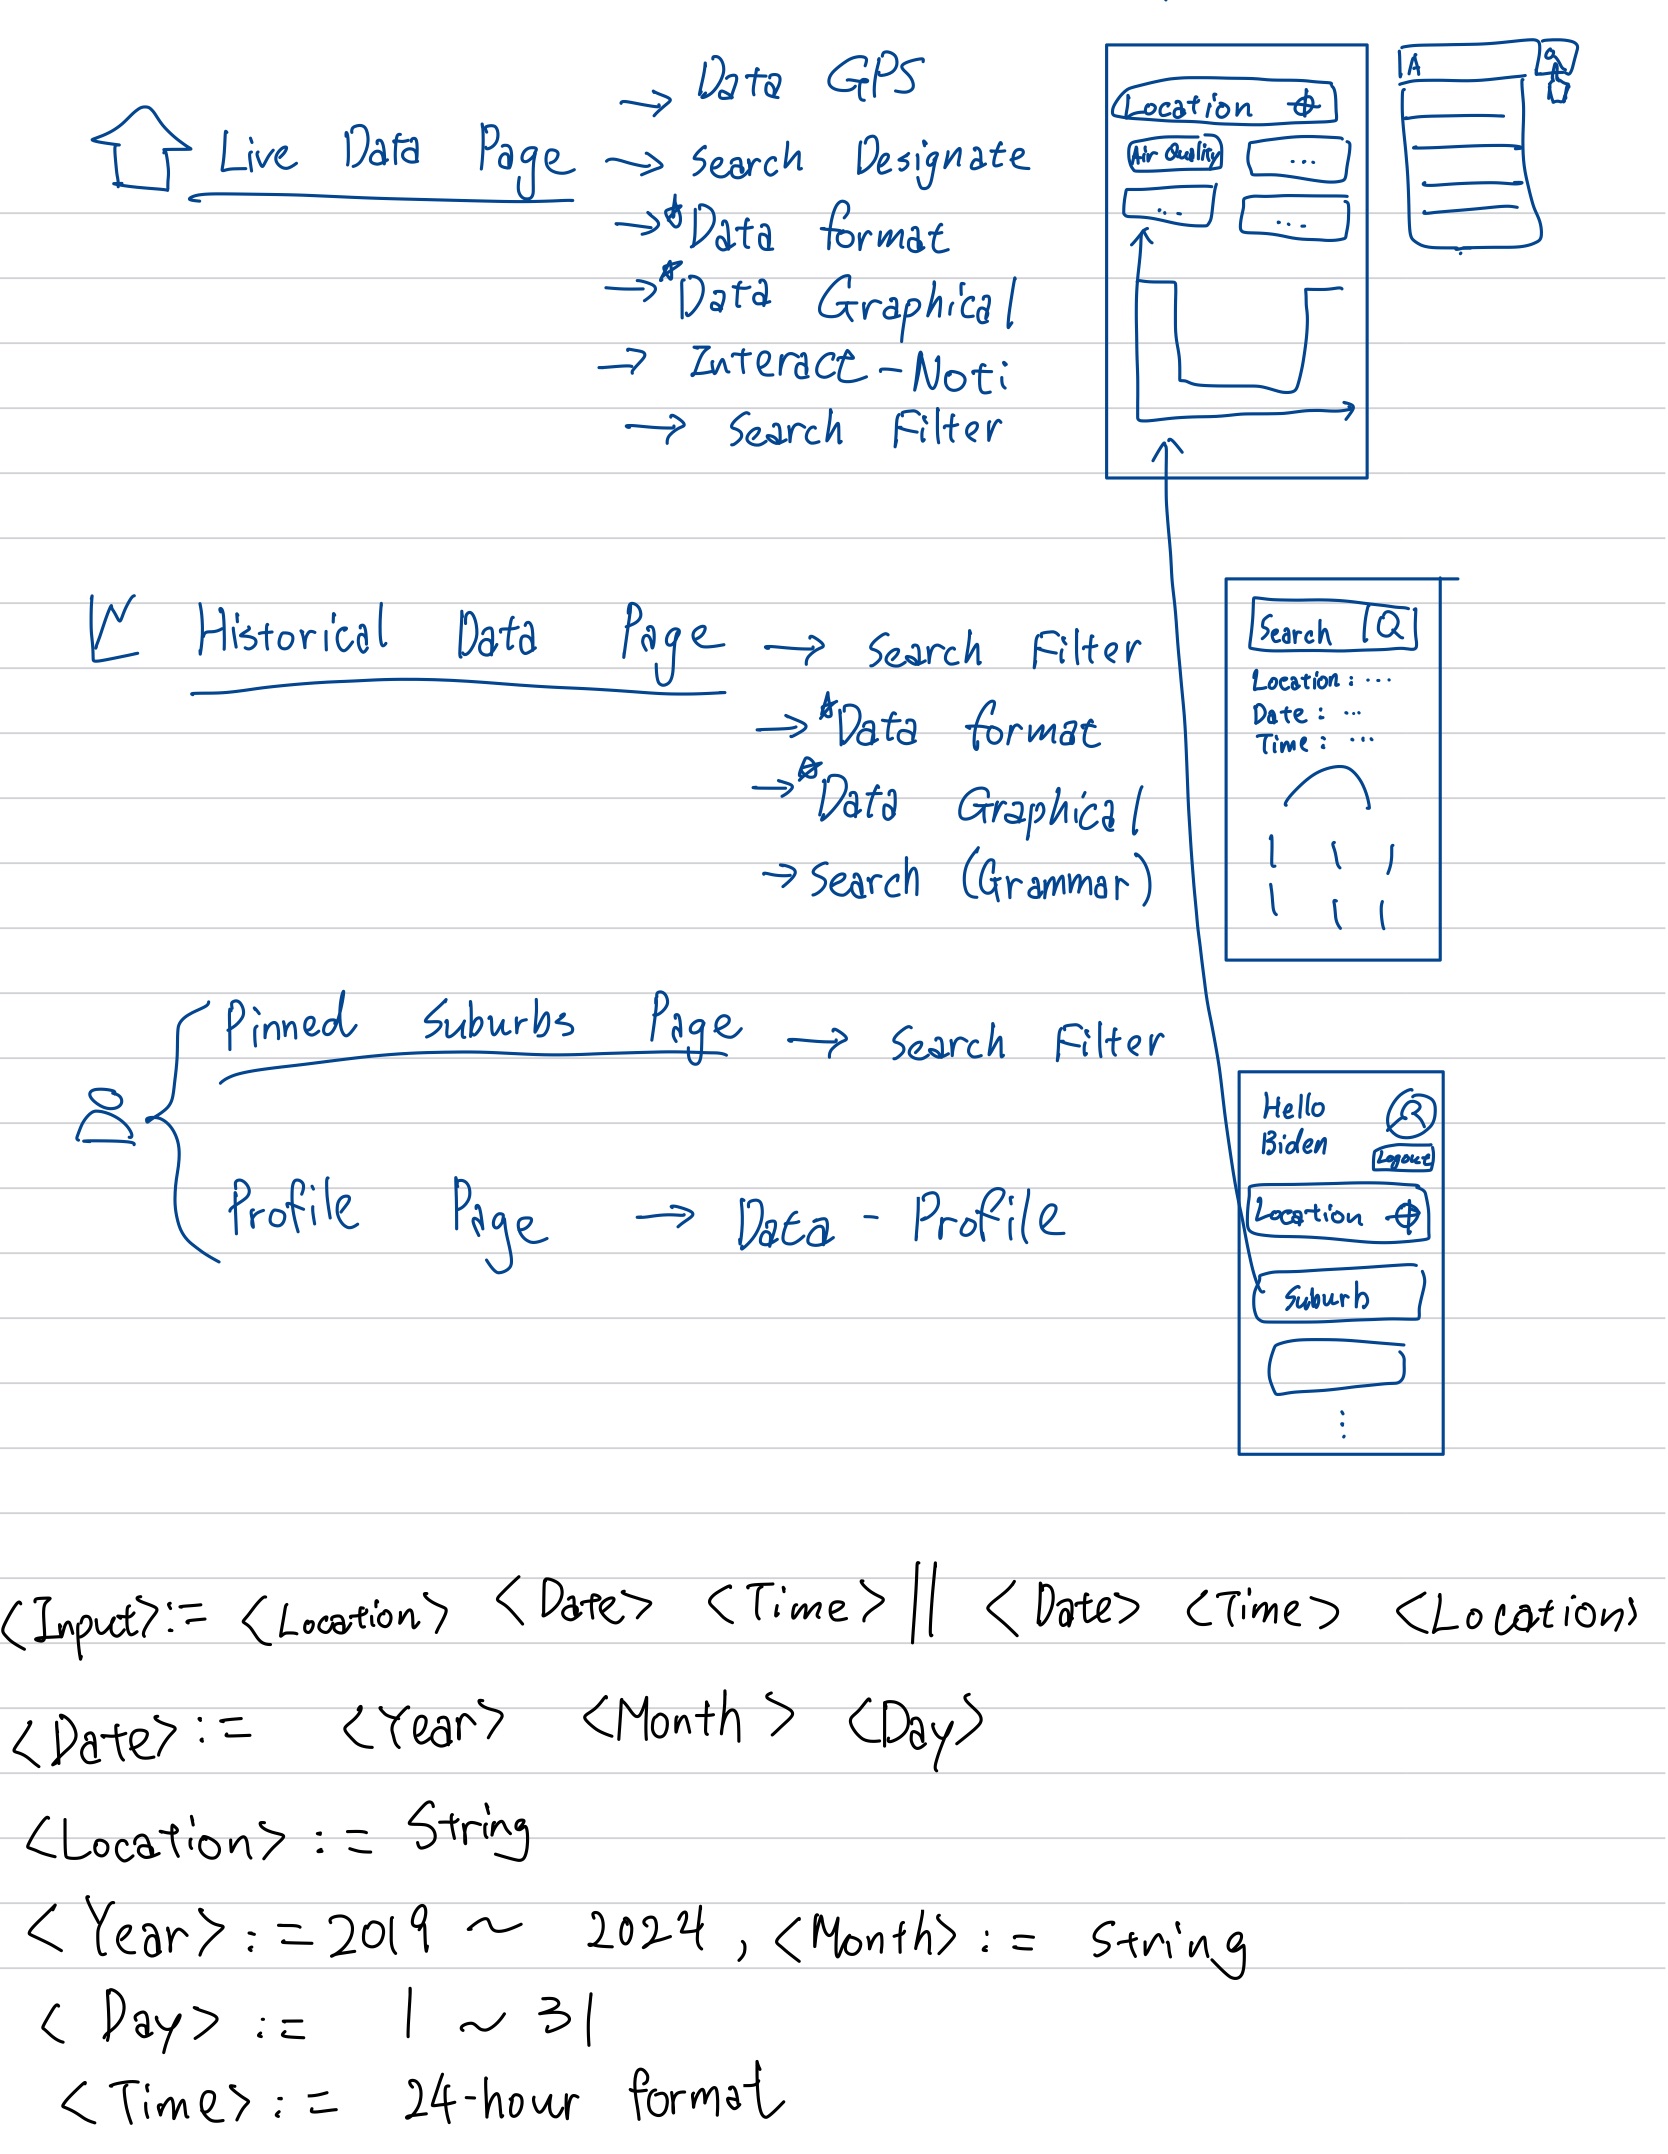 Live Data Page
→ Data GPS
→ Search Designate
→ *Data format
→ *Data Graphical
→ Interact - Noti
→ Search Filter
Location
Air Quality
...
...
...
A
Historical Data Page
→ Search Filter
→ *Data format
→ *Data Graphical
→ Search (Grammar)
Search
Location : ...
Date : ...
Time : ...
Pinned Suburbs Page → Search Filter
Profile Page → Data - Profile
Hello
Biden
Logout
Location
Suburb
<Input> := <Location> <Date> <Time> || <Date> <Time> <Location>
<Date> := <Year> <Month> <Day>
<Location> := String
<Year> := 2019 ~ 2024, <Month> := String
<Day> := 1 ~ 31
<Time> := 24-hour format